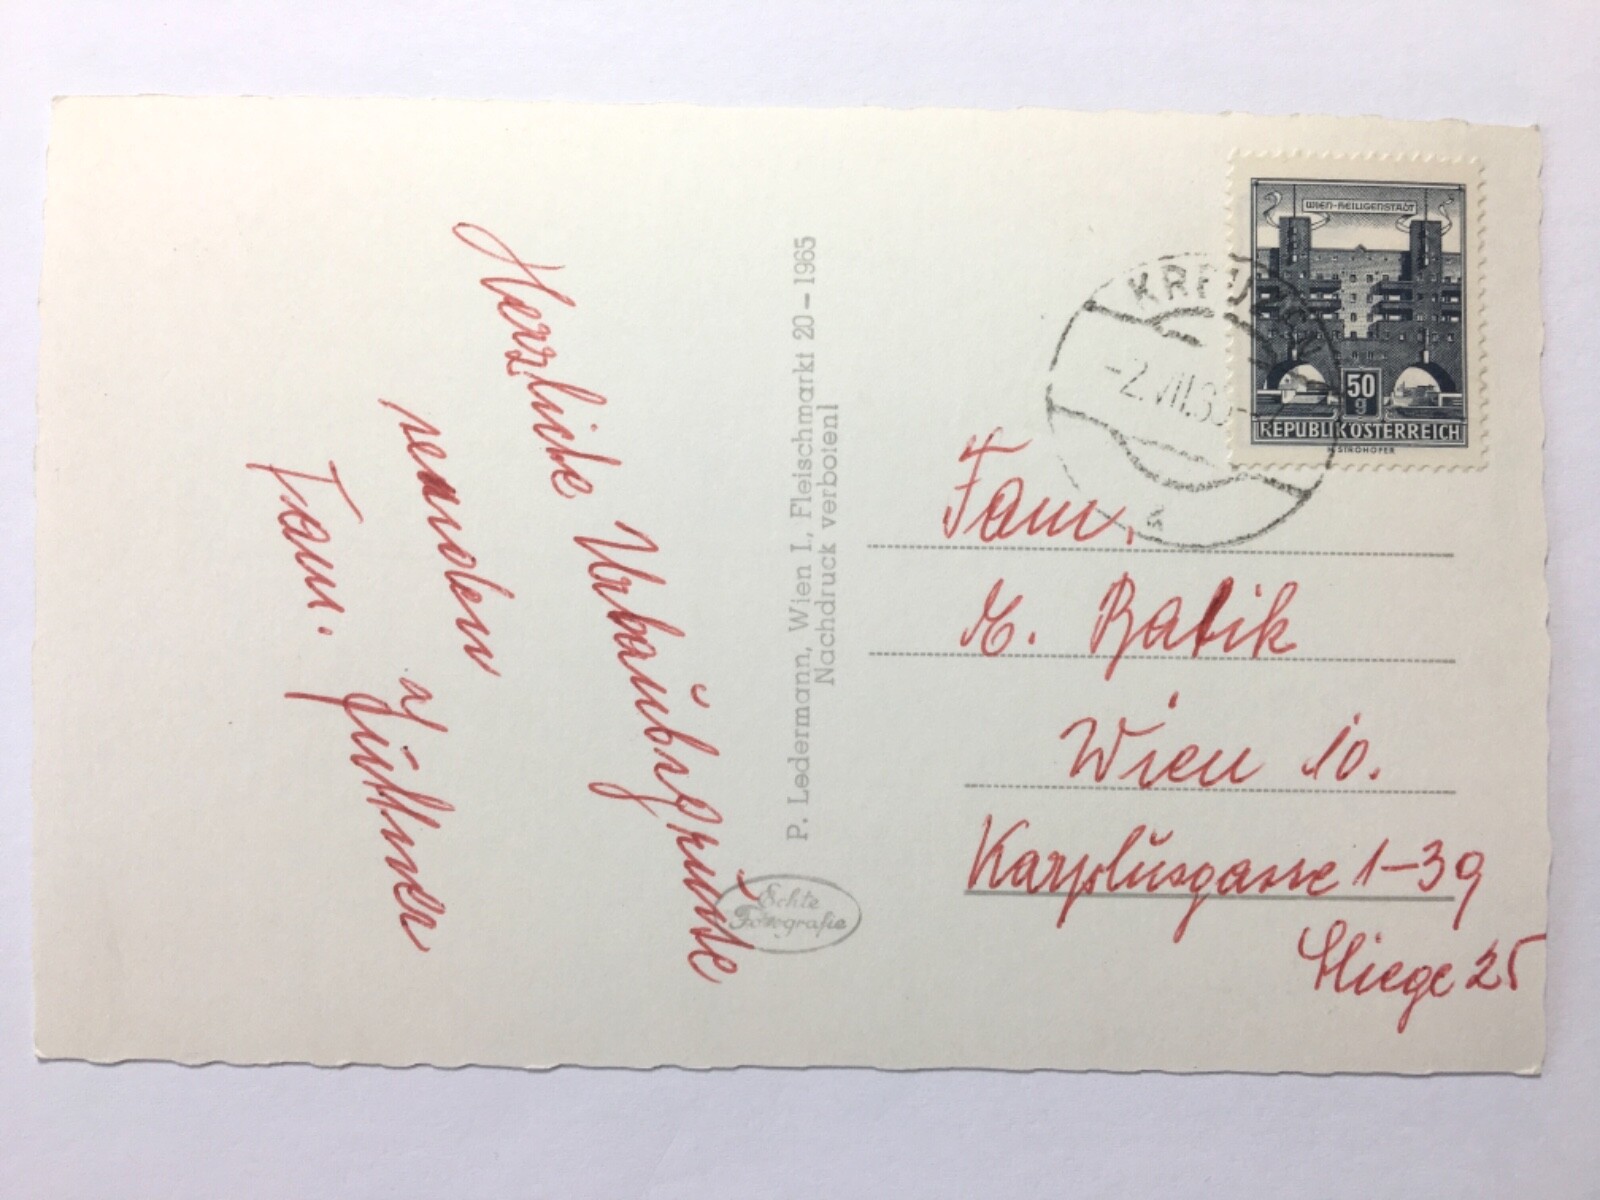 Herzliche Urlaubsgrüße
senden
Fam.
P. Ledermann, Wien I., Fleischmarkt 20 – 1965
Nachdruck verboten!
Echte
Fotografie
WIEN-HEILIGENSTADT
50
g
REPUBLIK ÖSTERREICH
H. STROHOFER
-2.VII.
Fam.
Batik
Wien 10.
Karplusgasse 1-39
Stiege 25